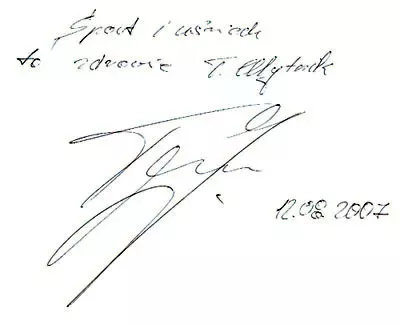 Sport i uśmiech
to zdrowie T.
12.08 2007